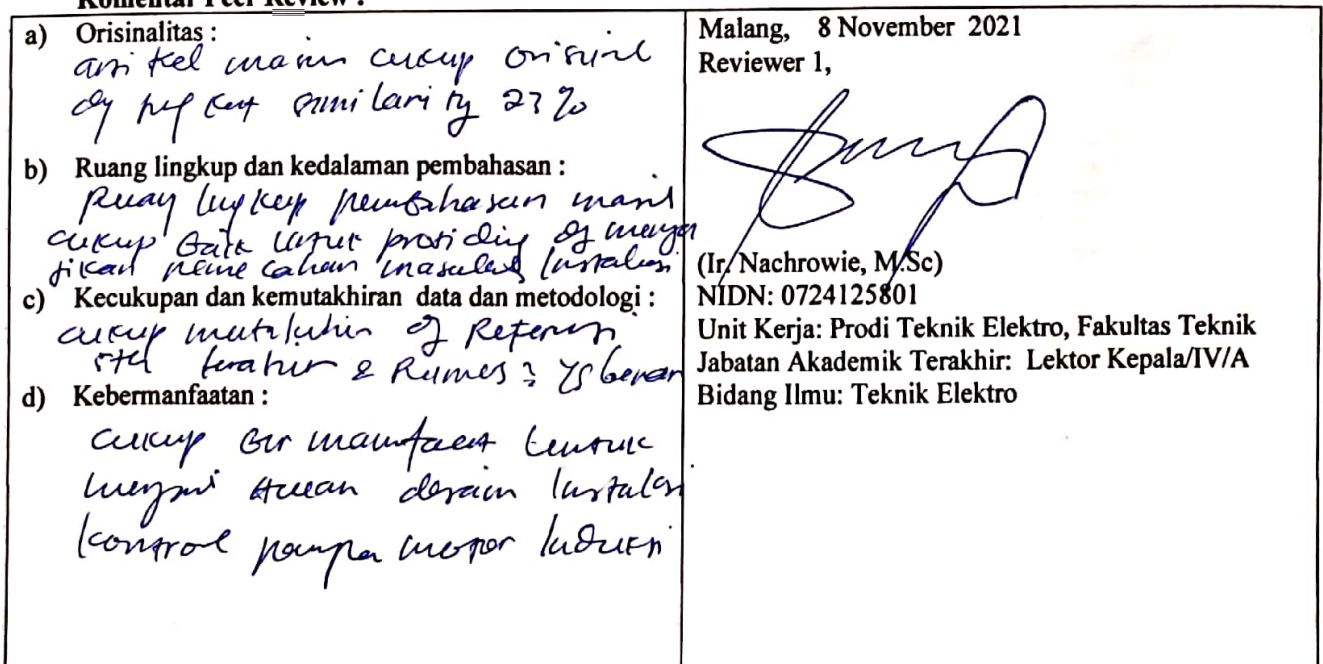 Komentar Peer Review :
a) Orisinalitas :
artikel masih cukup orisinil
dg tingkat similarity 23%
b) Ruang lingkup dan kedalaman pembahasan :
Ruang lingkup pembahasan masih
cukup baik untuk prosiding dg
pemecahan masalah Instalasi
c) Kecukupan dan kemutakhiran data dan metodologi :
cukup mutakhir dg Referensi
& Rumus² yg benar
d) Kebermanfaatan :
cukup bermanfaat untuk
desain Instalasi
kontrol pompa motor Induksi
Malang, 8 November 2021
Reviewer 1,
(Ir. Nachrowie, M.Sc)
NIDN: 0724125801
Unit Kerja: Prodi Teknik Elektro, Fakultas Teknik
Jabatan Akademik Terakhir: Lektor Kepala/IV/A
Bidang Ilmu: Teknik Elektro